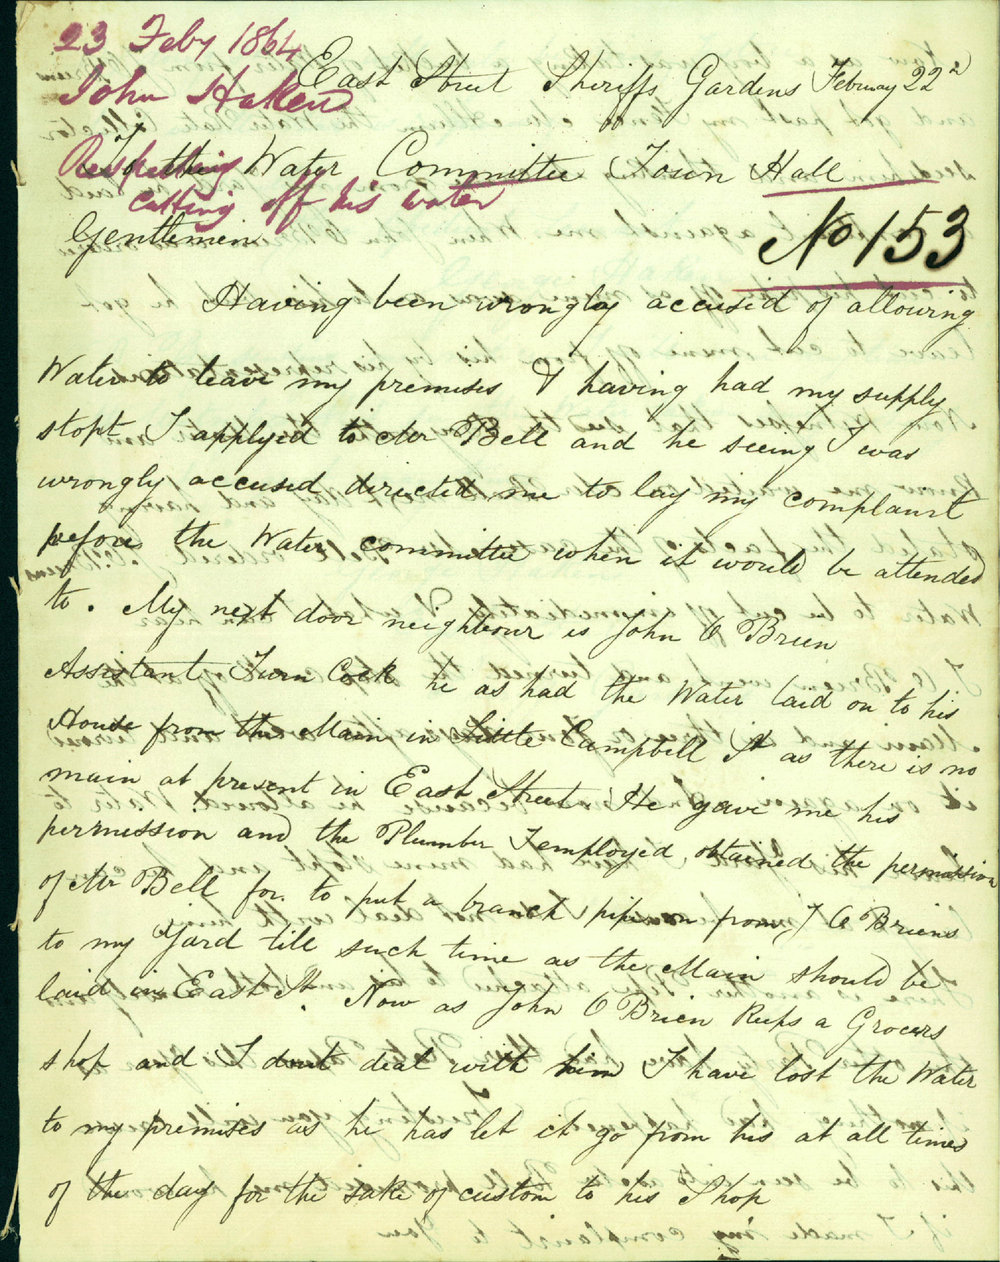 23 Feby 1864
John Haken
Respecting
cutting off his water
East Street Sheriffs Gardens February 22nd
To the Water Committee Town Hall
No 153
Gentlemen
Having been wrongly accused of allowing
Water to leave my premises & having had my supply
stopt I applyed to Mr Bell and he seeing I was
wrongly accused directed me to lay my complaint
before the Water committee when it would be attended
to. My next door neighbour is John O Brien
Assistant Turn Cock he as had the Water laid on to his
House from the Main in Little Campbell St as there is no
main at present in East Street He gave me his
permission and the Plumber I employed obtained the permission
of Mr Bell for to put a branch pipe on from J O Briens
to my Yard till such time as the Main should be
laid in East St. Now as John O Brien Keeps a Grocers
shop and I dont deal with him I have lost the Water
to my premises as he has let it go from his at all times
of the day for the sake of custom to his Shop